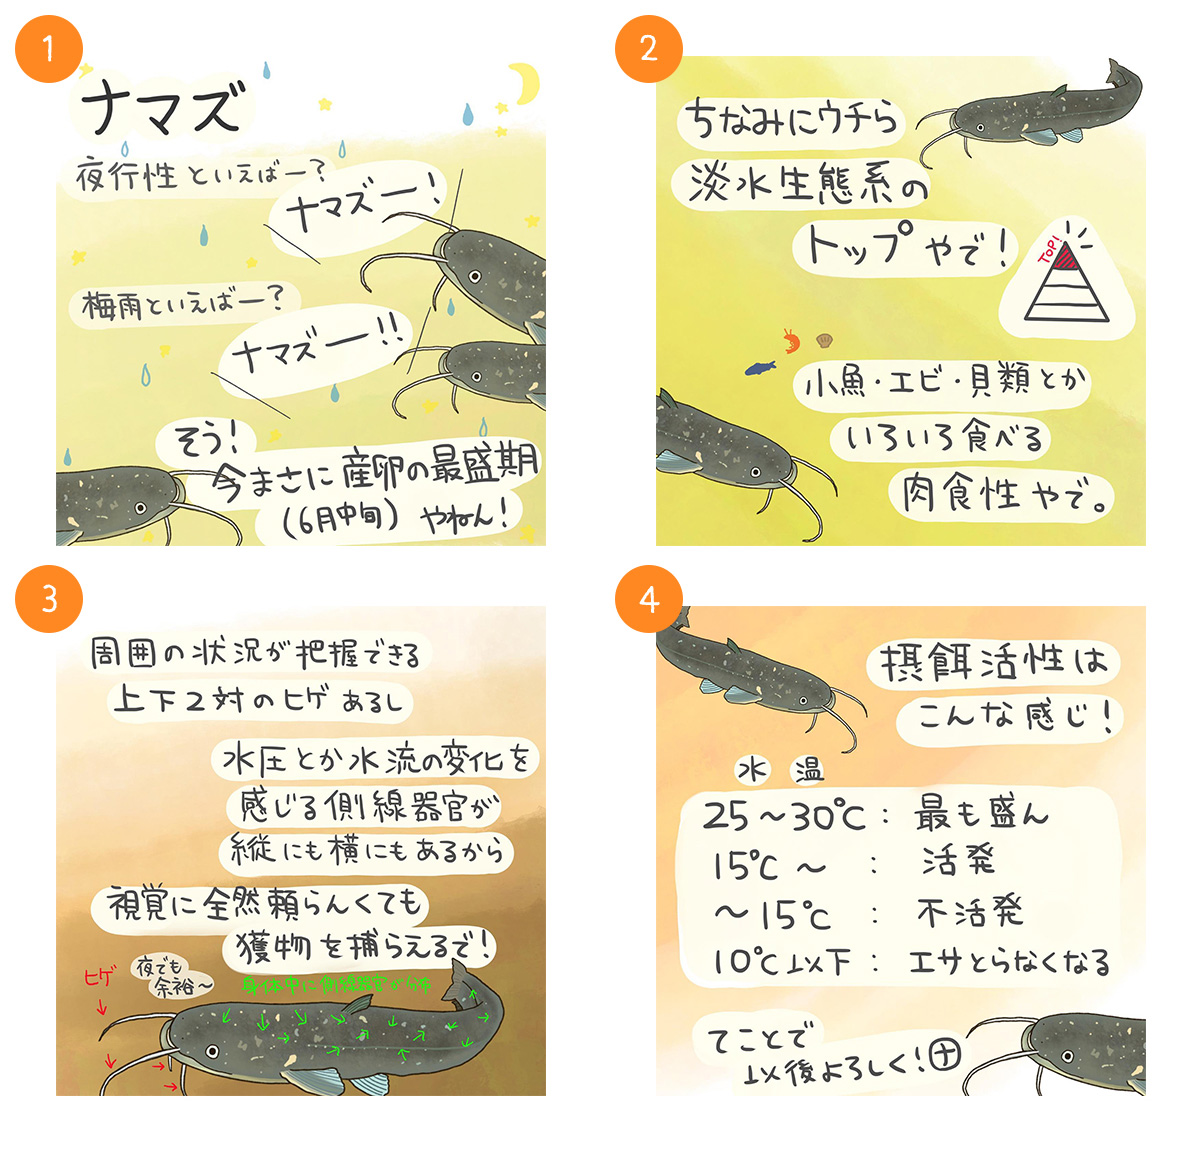 1
ナマズ
夜行性といえばー？
ナマズー！
梅雨といえばー？
ナマズー!!
そう！
今まさに産卵の最盛期
（6月中旬）やねん！
2
ちなみにウチら
淡水生態系の
トップやで！
TOP!
小魚・エビ・貝類とか
いろいろ食べる
肉食性やで。
3
周囲の状況が把握できる
上下2対のヒゲあるし
水圧とか水流の変化を
感じる側線器官が
縦にも横にもあるから
視覚に全然頼らんくても
獲物を捕らえるで！
ヒゲ
夜でも
余裕～
身体中に側線器官が分布
4
摂餌活性は
こんな感じ！
水温
25～30℃：最も盛ん
15℃～：活発
～15℃：不活発
10℃以下：エサとらなくなる
てことで
以後よろしく！